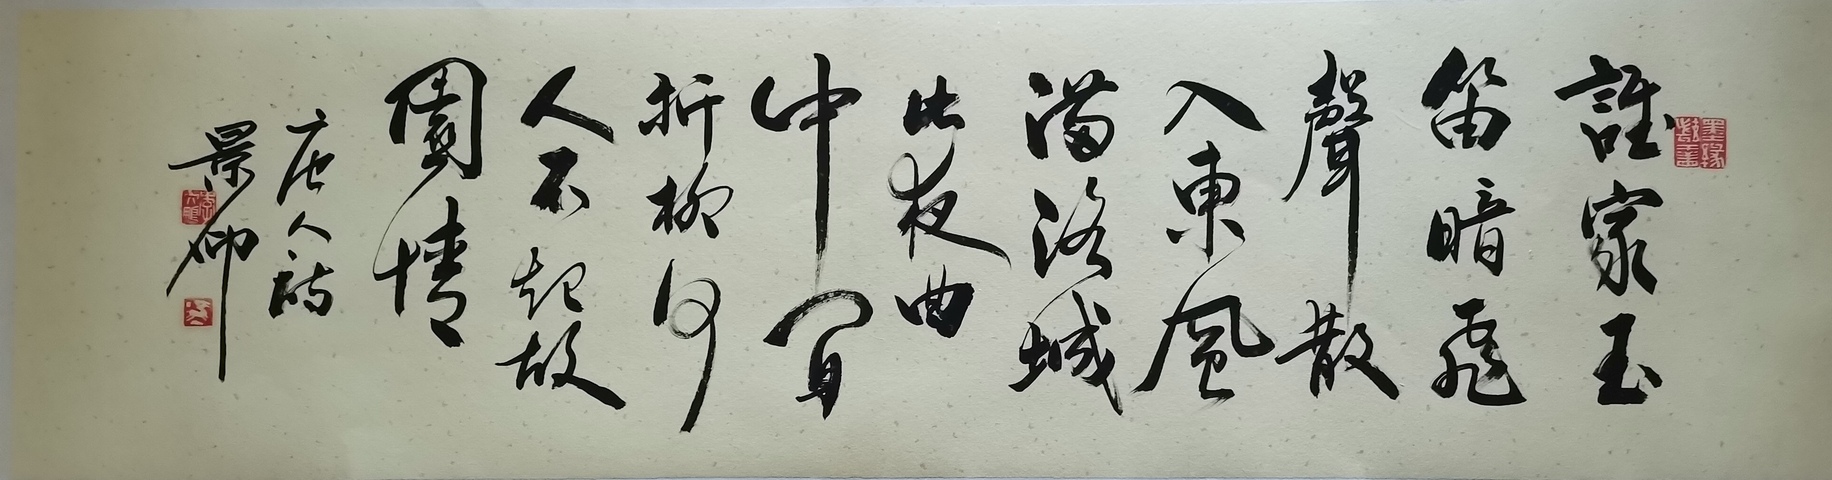 誰家玉
笛暗飛
聲散
入東風
滿洛城
此夜曲
中間
折柳何
人不起故
園情
唐人詩
景仰